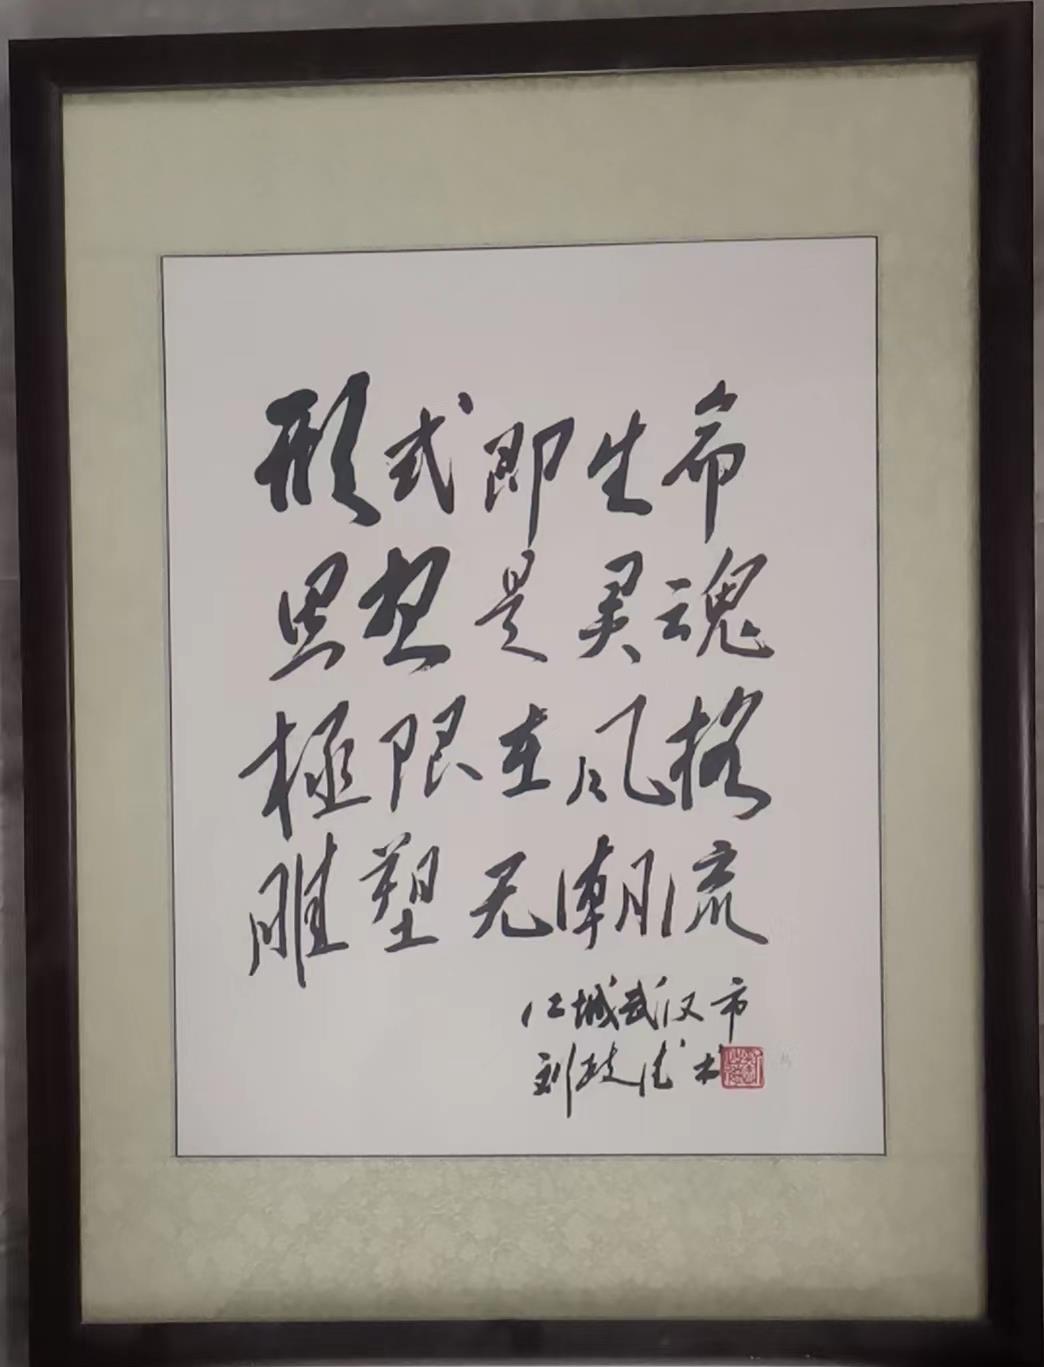 形式即生命
思想是灵魂
極限在风格
雕塑无潮流
江城武汉市
刘政德书